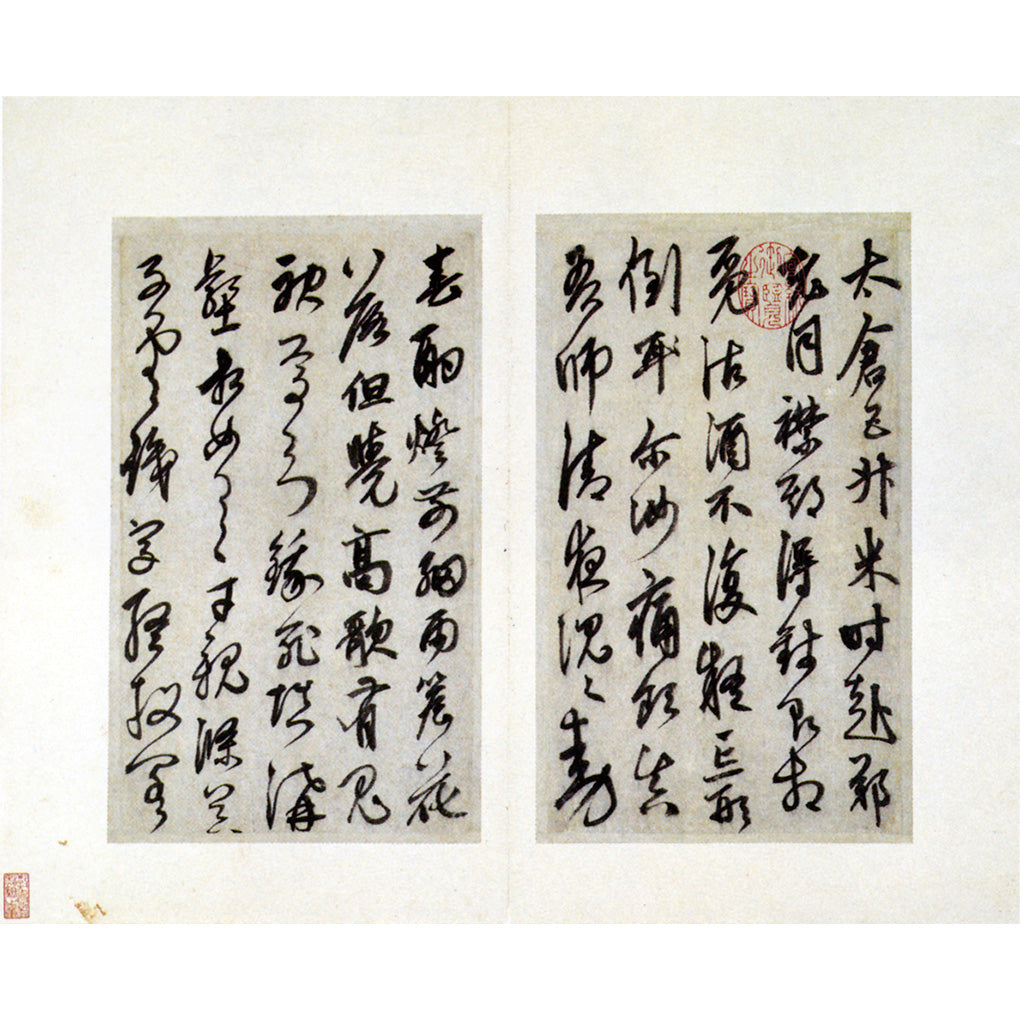 太倉五升米时赴鄭
老同襟期得錢即相
覓沽酒不復疑忘形
倒耳尔汝痛飲真
吾師清夜沉〻動
春酌燈前細雨簷花
落但覺高歌有鬼
神焉知餓死填溝
壑相如逸才親滌器
子雲識字終投閣